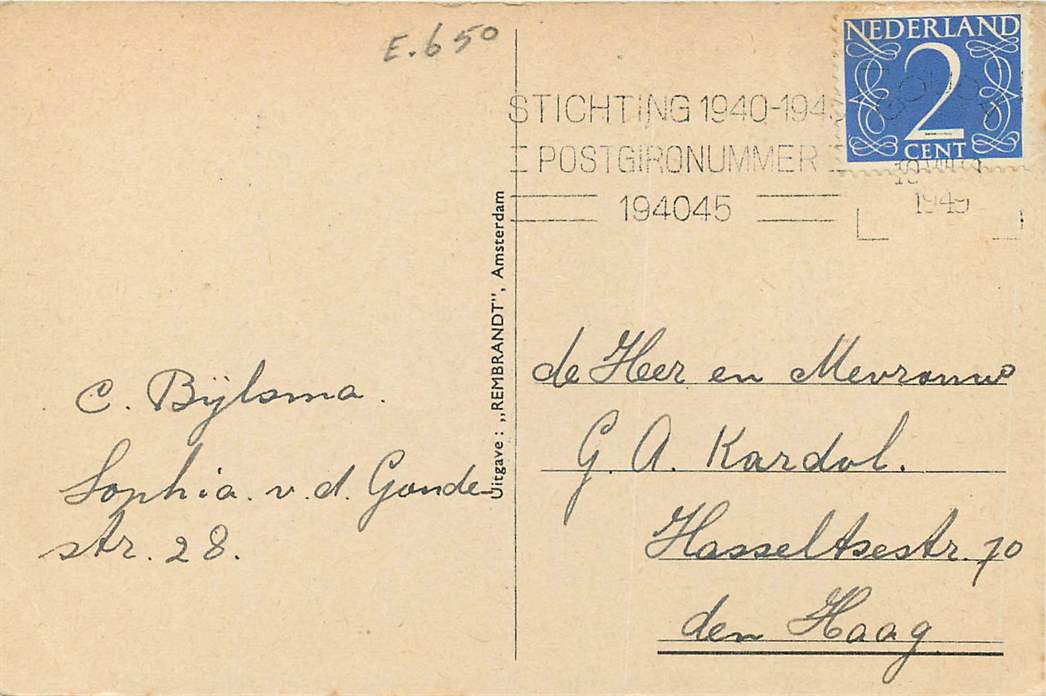 E.650
NEDERLAND
2
CENT
STICHTING 1940-194
POSTGIRONUMMER
194045
1949
Uitgave: „REMBRANDT", Amsterdam
C. Bijlsma.
Sophia. v. d. Goude-
str. 28.
de Heer en Mevrouw
G. A. Kardol.
Hasseltsestr. 70
den Haag